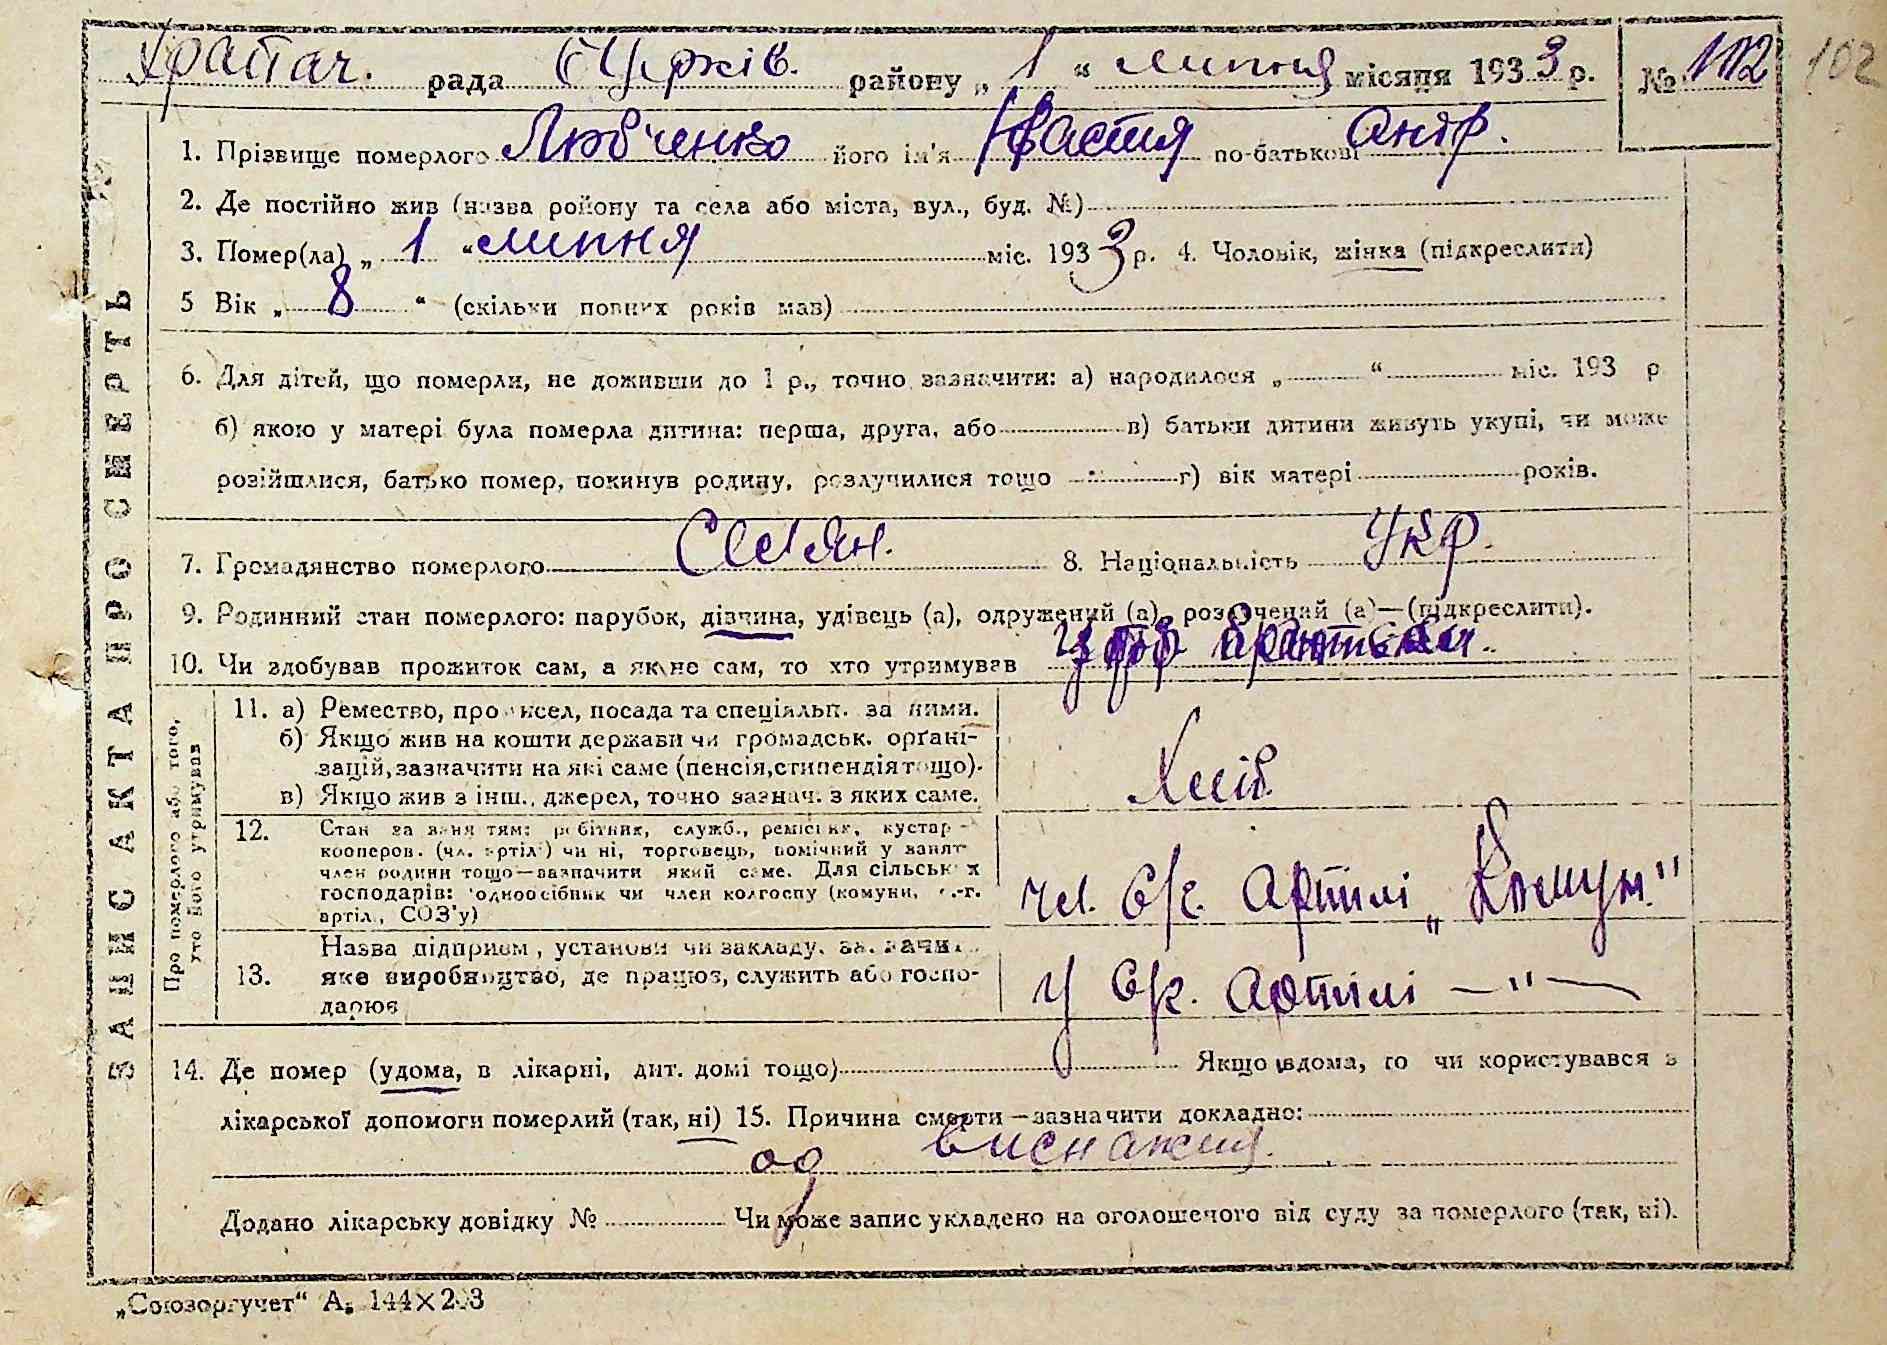 Храпач. рада б/Церків. району „ 1 “ липня місяця 1933 р. № 102 102
1. Прізвище померлого Любченко його ім'я Настя по-батькові
2. Де постійно жив (назва району та села або міста, вул., буд. №)
3. Помер(ла) „ 1 “ липня міс. 1933 р. 4. Чоловік, жінка (підкреслити)
5 Вік „ 8 “ (скільки повних років мав)
6. Для дітей, що померли, не доживши до 1 р., точно зазначити: а) народилося „ “ міс. 193 р
б) якою у матері була померла дитина: перша, друга, або в) батьки дитини живуть укупі, чи може
розійшлися, батько помер, покинув родину, розлучилися тощо г) вік матері років.
7. Громадянство померлого Селян. 8. Національність Укр.
9. Родинний стан померлого: парубок, дівчина, удівець (а), одружений (а), розлучений (а)—(підкреслити).
10. Чи здобував прожиток сам, а як не сам, то хто утримував
ЗАПИС АКТА ПРО СМЕРТЬ
Про померлого або того, хто його утримував
11. а) Ремество, промисел, посада та спеціяльн. за ними.
б) Якщо жив на кошти держави чи громадськ. орґані-
зацій, зазначити на які саме (пенсія, стипендія тощо).
в) Якщо жив з інш. джерел, точно зазнач. з яких саме.
Хліб.
12. Стан за заняттям: робітник, служб., ремісник, кустар -
кооперов. (чл. артілі) чи ні, торговець, помічний у занят
член родини тощо—зазначити який саме. Для сільських
господарів: одноосібник чи член колгоспу (комуни, с.-г.
артіл., СОЗ'у)
чл. с/г. артілі „Комун."
13. Назва підприєм., установи чи закладу, зазначит.
яке виробництво, де працює, служить або госпо-
дарює
у с/г. артілі —"—
14. Де помер (удома, в лікарні, дит. домі тощо) Якщо вдома, то чи користувався з
лікарської допомоги померлий (так, ні) 15. Причина смерти—зазначити докладно:
од виснажня.
Додано лікарську довідку № Чи може запис укладено на оголошеного від суду за померлого (так, ні).
„Союзоргучет“ А, 144×203